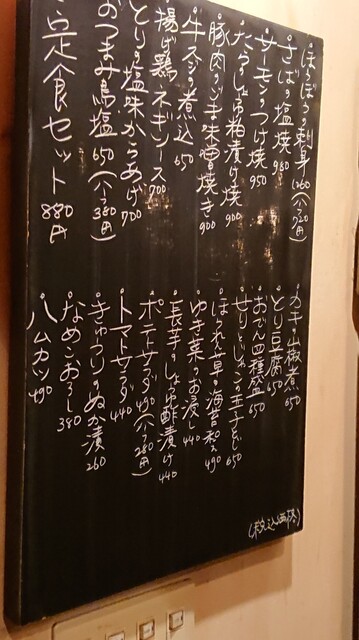 ほうぼうの刺身 1260(ハーフ720円)
さばの塩焼 980
サーモンのつけ焼 950
たらのしょうゆ粕漬け焼 900
豚肉のごま味噌焼き 900
牛スジの煮込 650
揚げ鶏 ネギソース 700
とりの塩味からあげ 700
おつまみ鳥塩 650(ハーフ380円)
定食セット 880円
カキの山椒煮 650
とり豆腐 650
おでん四種盛 650
せりとじゃこの玉子とじ 650
ほうれん草の海苔和え 490
ゆき菜のお浸し 440
長芋のしょうゆ酢漬け 440
ポテトサラダ 490(ハーフ280円)
トマトサラダ 440
きゅうりのぬか漬 260
なめこおろし 380
ハムカツ 490
(税込価格)